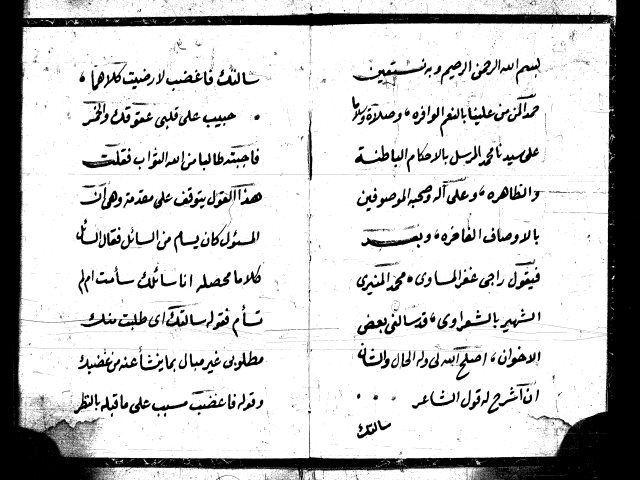 بسم الله الرحمن الرحيم وبه نستعين
حمدا لمن من علينا بالنعم الوافره وصلاة وسلاما
على سيدنا محمد المرسل بالاحكام الباطنية
والظاهره وعلى آله وصحبه الموصوفين
بالاوصاف الفاخره وبعد
فيقول راجى غفر المساوى محمد المنيرى
الشهير بالشعراوى قد سالنى بعض
الاخوان اصلح الله لى وله الحال والشان
ان اشرح له قول الشاعر
سالتك
سالتك فاغضب لا رضيت كلاهما
حبيب على قلبى عقوقك والخسر
فاجبته طالبا من الله الثواب فقلت
هذا القول يتوقف على مقدمة وهى أن
المسئول كان يسام من السائل فقال السائل
كلاما محصله انا سائلك سأمت ام لم
تسأم فقوله سالتك اى طلبت منك
مطلوبى غير مبال بما ينشأ عنه من غضبك
وقوله فاغضب مسبب على ما قبله بالنظر